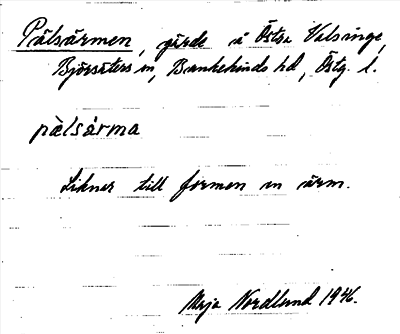 Pälsärmen, gärde å Östra Valsinge,
Björsäters sn, Bankekinds hd, Östg. l.
pälsärma
Liknar till formen en ärm.
Maja Nordlund 1946.